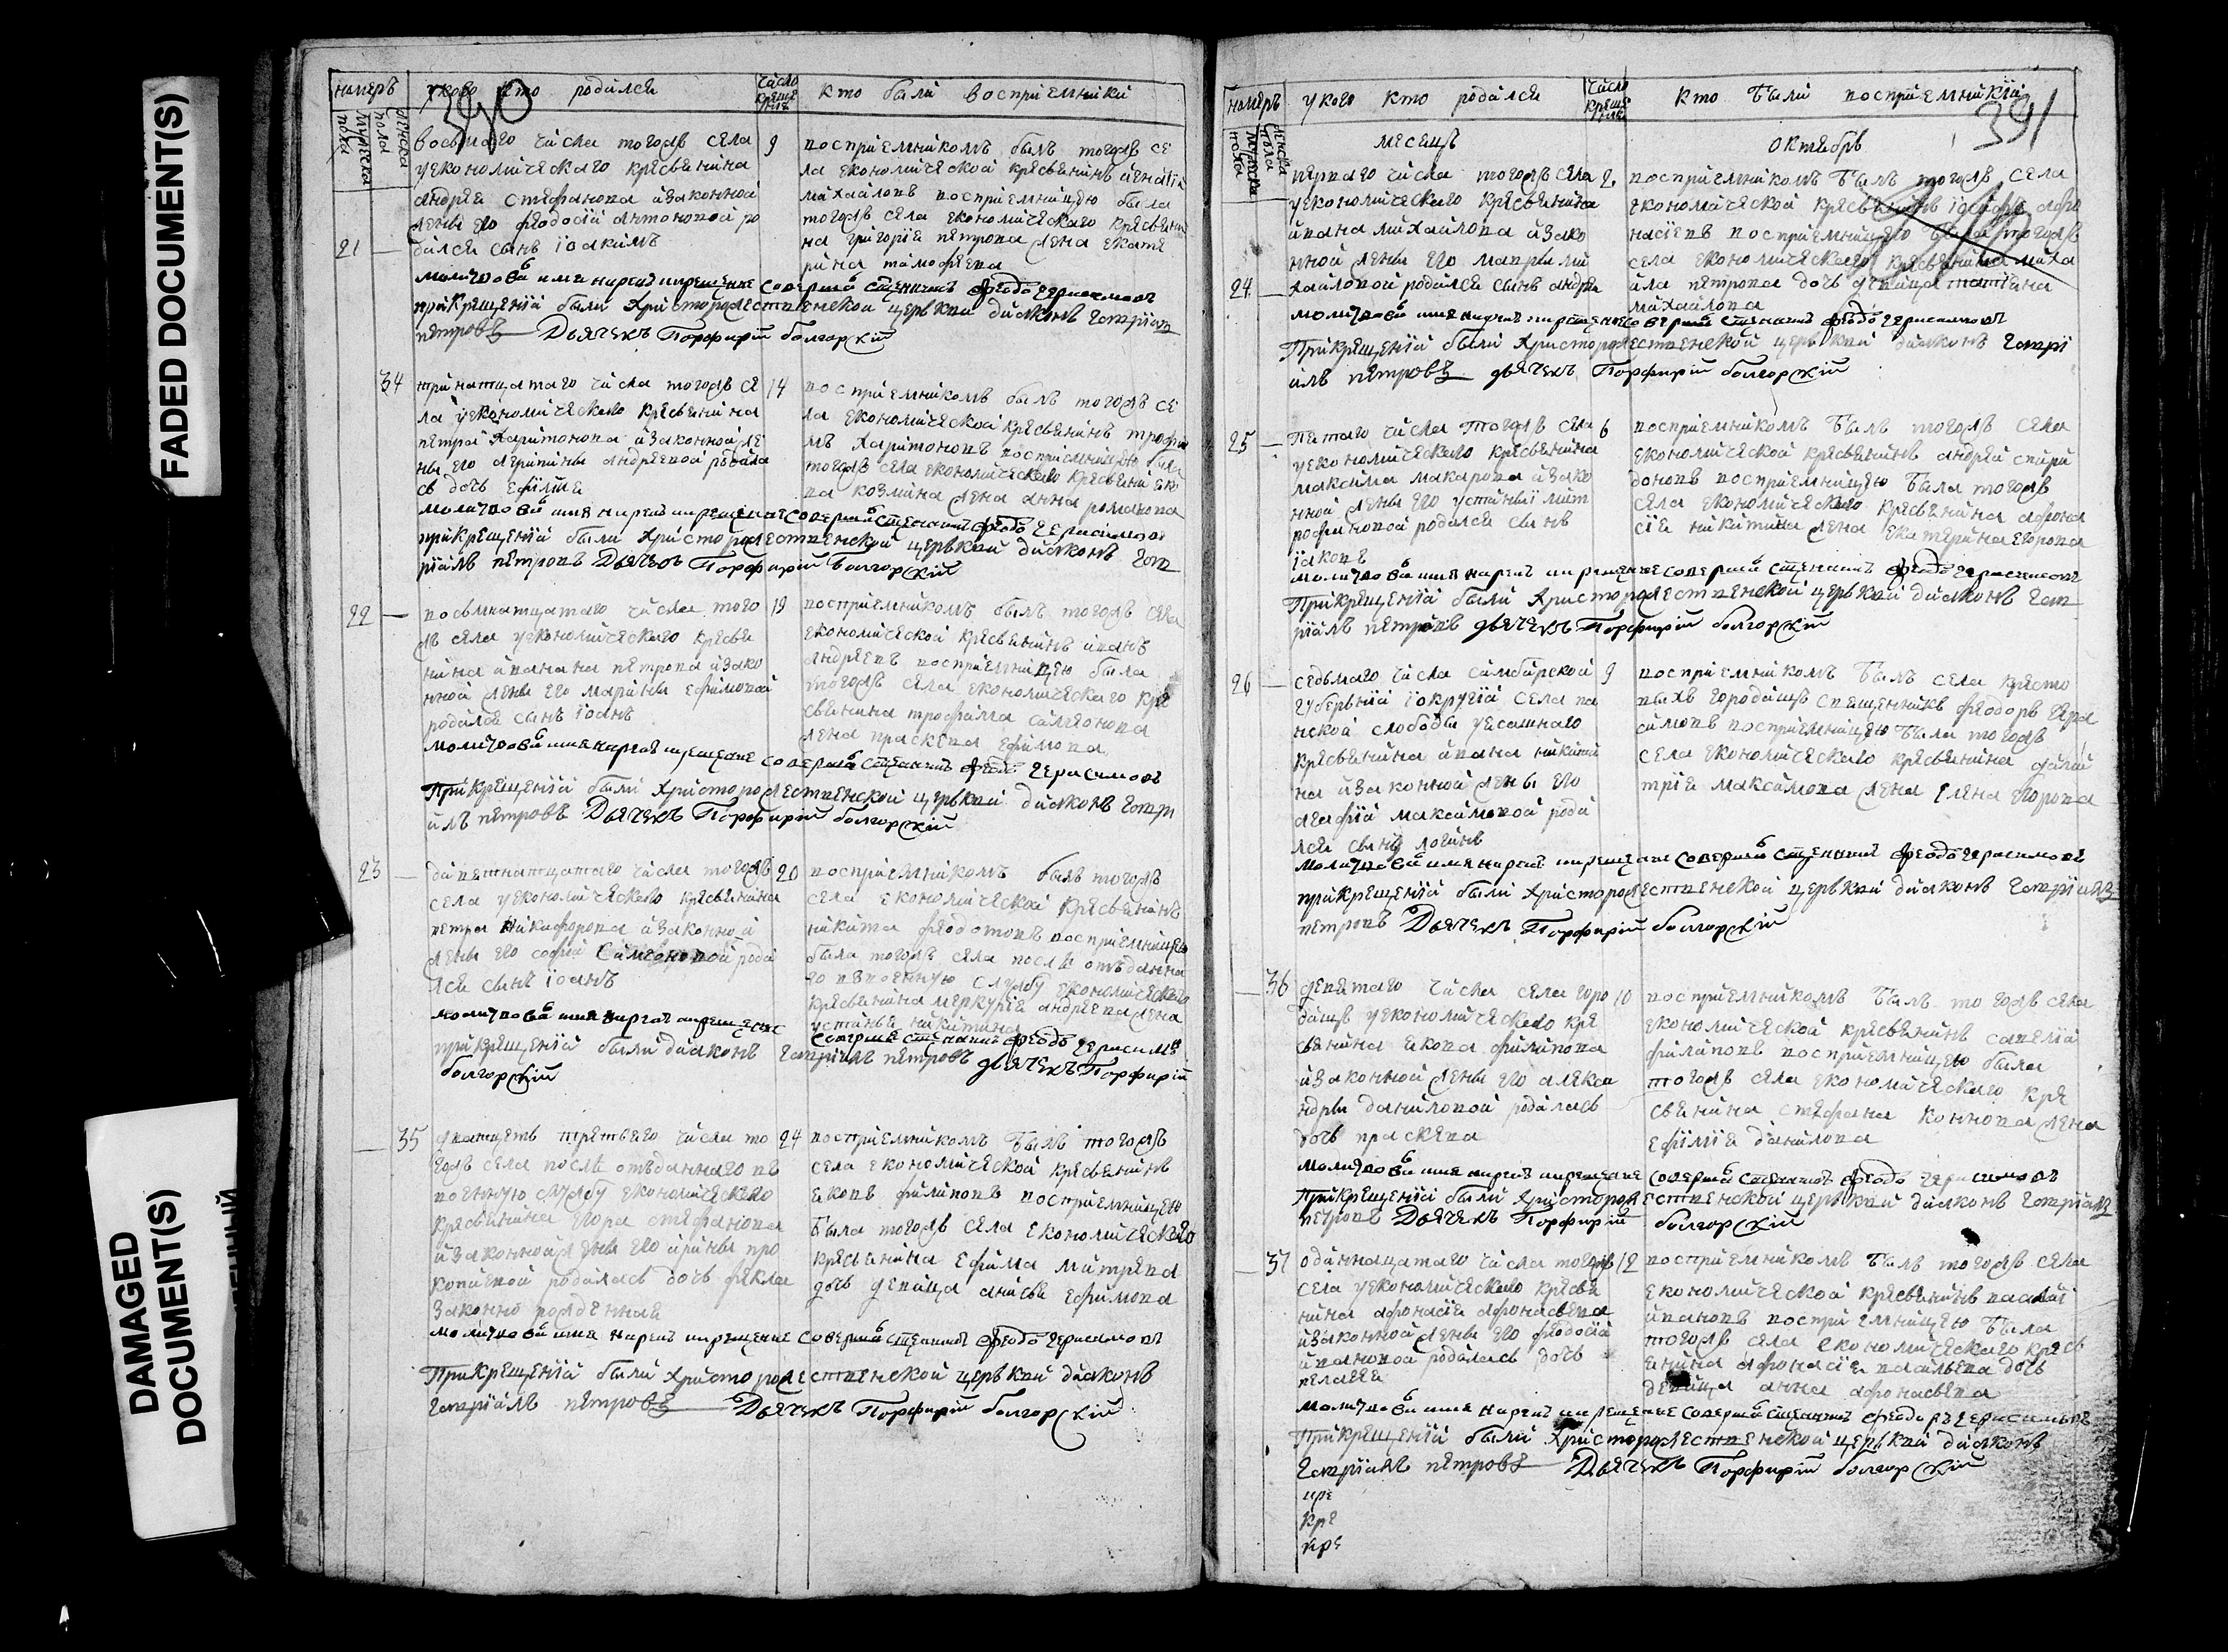 FADED DOCUMENT(S)
DAMAGED
DOCUMENT(S)
390
номеръ
у кого кто родился
число
креще
нія
кто были восприемники
мужеска
пола
женска
пола
восмаго числа тогожъ села
уекономическаго кресьянина
андрея стефанова изаконной
жены его феодосіи антоновой ро
21
дился сынъ іоакимъ
9
восприемникомъ былъ тогожъ се
ла економической кресьянинъ
михайловъ восприемницею была
тогожъ села економическаго кресьяни
на григорія петрова жена екате
рина тимофеева
молитвовалъ имя нарекъ икрещение совершилъ священникъ феодоръ герасимовъ
прикрещеніи были христорожественской церькви дияконъ гавріилъ
петровъ Дьячекъ Порфирій болгорскій
34
тринатцатаго числа тогожъ се
ла уекономическаго кресьянина
петра харитонова изаконной же
ны его агрипины андреевой родила
сь дочь ефимия
14
восприемникомъ былъ тогожъ се
ла економической кресьянинъ трофи
мъ харитоновъ восприемницею была
тогожъ села економическаго кресьянина
козмина жена анна романова
молитвовалъ имя нарекъ икрещение совершилъ священникъ феодоръ герасимовъ
прикрещеніи были христорожественской церькви дияконъ гав
ріилъ петровъ Дьячекъ Порфирій Болгорскій
22
восьмнатцатаго числа того
жъ села уекономическаго кресья
нина ивана петрова изако
нной жены его марины ефимовой
родился сынъ іоанъ
19
восприемникомъ былъ тогожъ села
економической кресьянинъ иванъ
андреевъ восприемницею была
тогожъ села економическаго кре
сьянина трофима симеонова
жена праскева ефимова
молитвовалъ имя нарекъ икрещение совершилъ священникъ феодоръ герасимовъ
Прикрещеніи были христорожественской церькви дияконъ гаври
илъ петровъ Дьячекъ Порфирій болгорскій
23
девятнатцатаго числа тогожъ
села уекономическаго кресьянина
петра никифорова изаконной
жены его софіи симеоновой роди
лся сынъ іоанъ
20
восприемникомъ былъ тогожъ
села економической кресьянинъ
никита феодотовъ восприемницею
была тогожъ села после отъданна
го ввоенную службу економическаго
кресьянина меркурія андреева жена
устинья никитина
молитвовалъ имя нарекъ икрещение
совершилъ священникъ феодоръ герасимовъ
прикрещеніи были дияконъ гавріилъ петровъ дьячекъ Порфирій
болгорскій
35
дватцеть третьяго числа то
гожъ села после отъданнаго въ
военную службу економическаго
кресьянина егора стефанова
изаконной жены его ирины про
копиевой родилась дочь фекла
законно рожденная
24
восприемникомъ былъ тогожъ
села економической кресьянинъ
яковъ филиповъ восприемницею
была тогожъ села економическаго
кресьянина ефима митрева
дочь девица анисья ефимова
молитвовалъ имя нарекъ икрещение совершилъ священникъ феодоръ герасимовъ
Прикрещеніи были христорожественской церькви дияконъ
гавріилъ петровъ Дьячекъ Порфирій болгорскій
391
номеръ
у кого кто родился
число
креще
нія
кто были восприемники
мужеска
пола
женска
пола
месецъ
октябрь
перваго числа тогожъ села
уекономическаго кресьянина
ивана михайлова изако
нной жены его марьи ми
24
хайловой родился сынъ андрей
2
восприемникомъ былъ тогожъ села
економической кресьянинъ іосифъ афо
насіевъ восприемницею была тогожъ
села економическаго кресьянина миха
ила петрова дочь девица татияна
михайлова
молитвовалъ имя нарекъ икрещение совершилъ священникъ феодоръ герасимовъ
Прикрещеніи были христорожественской церькви дияконъ гаврі
илъ петровъ дьячекъ Порфирій болгорскій
25
пятаго числа тогожъ села
уекономическаго кресьянина
максима макарова изако
нной жены его устиньи мит
рофановой родился сынъ
іаковъ
6
восприемникомъ былъ тогожъ села
економической кресьянинъ андрей спири
доновъ восприемницею была тогожъ
села економическаго кресьянина афона
сія никитина жена екатерина егорова
молитвовалъ имя нарекъ икрещение совершилъ священникъ феодоръ герасимовъ
Прикрещеніи были христорожественской церькви дияконъ гав
ріилъ петровъ дьячекъ Порфирій болгорскій
26
седьмаго числа симбирской
губерніи іокругіи села па
нской слободы уясашнаго
кресьянина ивана никити
на изаконной жены его
агафіи максимовой роди
лся сынъ логинъ
9
восприемникомъ былъ села кресто
выхъ городищъ священникъ феодоръ гера
симовъ восприемницею была тогожъ
села економическаго кресьянина дими
трія максимова жена елена егорова
молитвовалъ имя нарекъ икрещение совершилъ священникъ феодоръ герасимовъ
прикрещеніи были христорожественской церькви дияконъ гавріилъ
петровъ Дьячекъ Порфирій болгорскій
36
девятаго числа села горо
дищъ уекономическаго кре
сьянина якова филипова
изаконной жены его алекса
ндры даниловой родилась
дочь праскева
10
восприемникомъ былъ тогожъ села
економической кресьянинъ савелій
филиповъ восприемницею была
тогожъ села економическаго кре
сьянина стефана коннова жена
ефимія данилова
молитвовалъ имя нарекъ икрещение совершилъ священникъ феодоръ герасимовъ
Прикрещеніи были христорожественской церькви дияконъ гавріилъ
петровъ Дьячекъ Порфирій болгорскій
37
одиннацатаго числа тогожъ
села уекономическаго кресья
нина афонасія афонасьева
изаконной жены его феодосіи
ивановой родилась дочь
пелагея
12
восприемникомъ былъ тогожъ села
економической кресьянинъ василій
ивановъ восприемницею была
тогожъ села економическаго кресь
янина афонасія васильева дочь
девица анна афонасьева
молитвовалъ имя нарекъ икрещение совершилъ священникъ феодоръ герасимовъ
Прикрещеніи были христорожественской церькви дияконъ
гавріилъ петровъ Дьячекъ Порфирій болгорскій
кре
кре